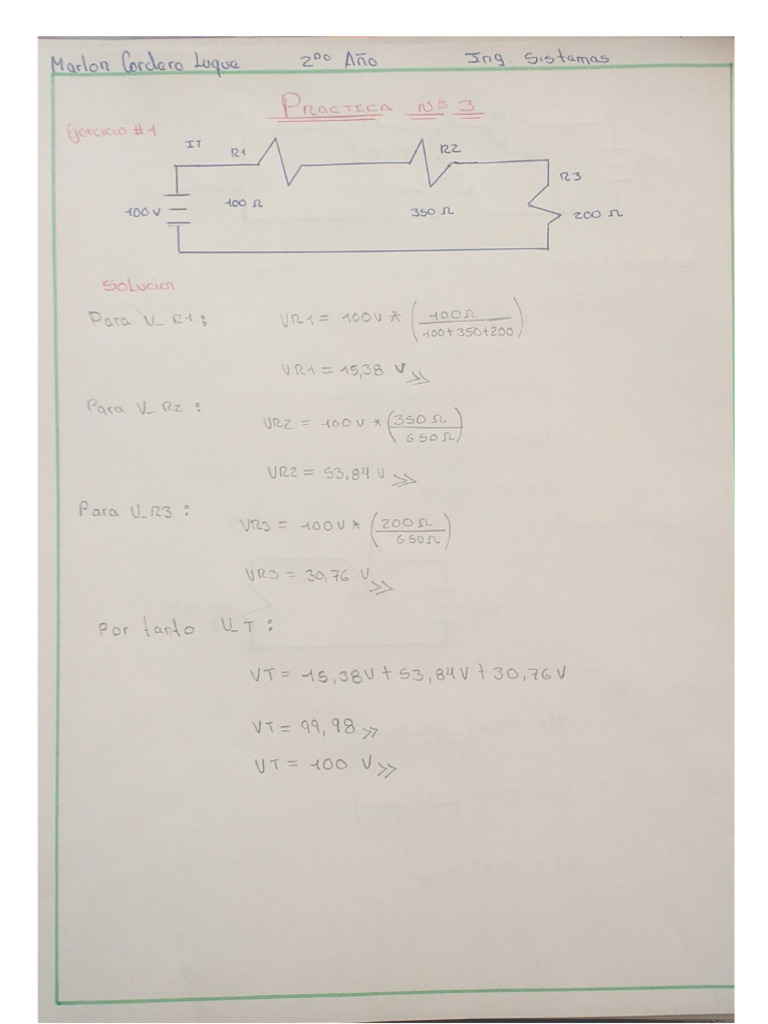 Marlon Cordero Luque 2do Año Ing. Sistemas
PRACTICA Nº 3
Ejercicio #1
IT
R1
R2
R3
100V
100 Ω
350 Ω
200 Ω
Solucion
Para V_R1: VR1 = 100V * (100Ω / 100+350+200)
VR1 = 15,38 V
Para V_R2: VR2 = 100V * (350Ω / 650Ω)
VR2 = 53,84 V
Para V_R3: VR3 = 100V * (200Ω / 650Ω)
VR3 = 30,76 V
Por tanto V_T:
VT = 15,38V + 53,84V + 30,76V
VT = 99,98
VT = 100 V